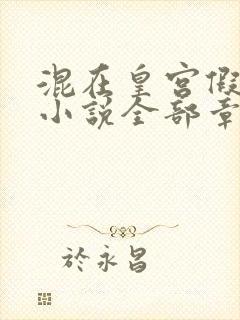 混在皇宫假
小说全部章
於永昌